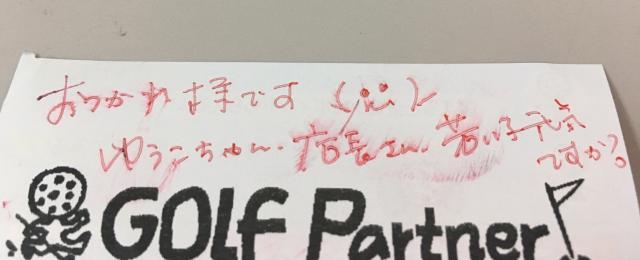 おつかれ様です
ゆうこちゃん・店長さん、若い子元気
ですか?
GOLF Partner